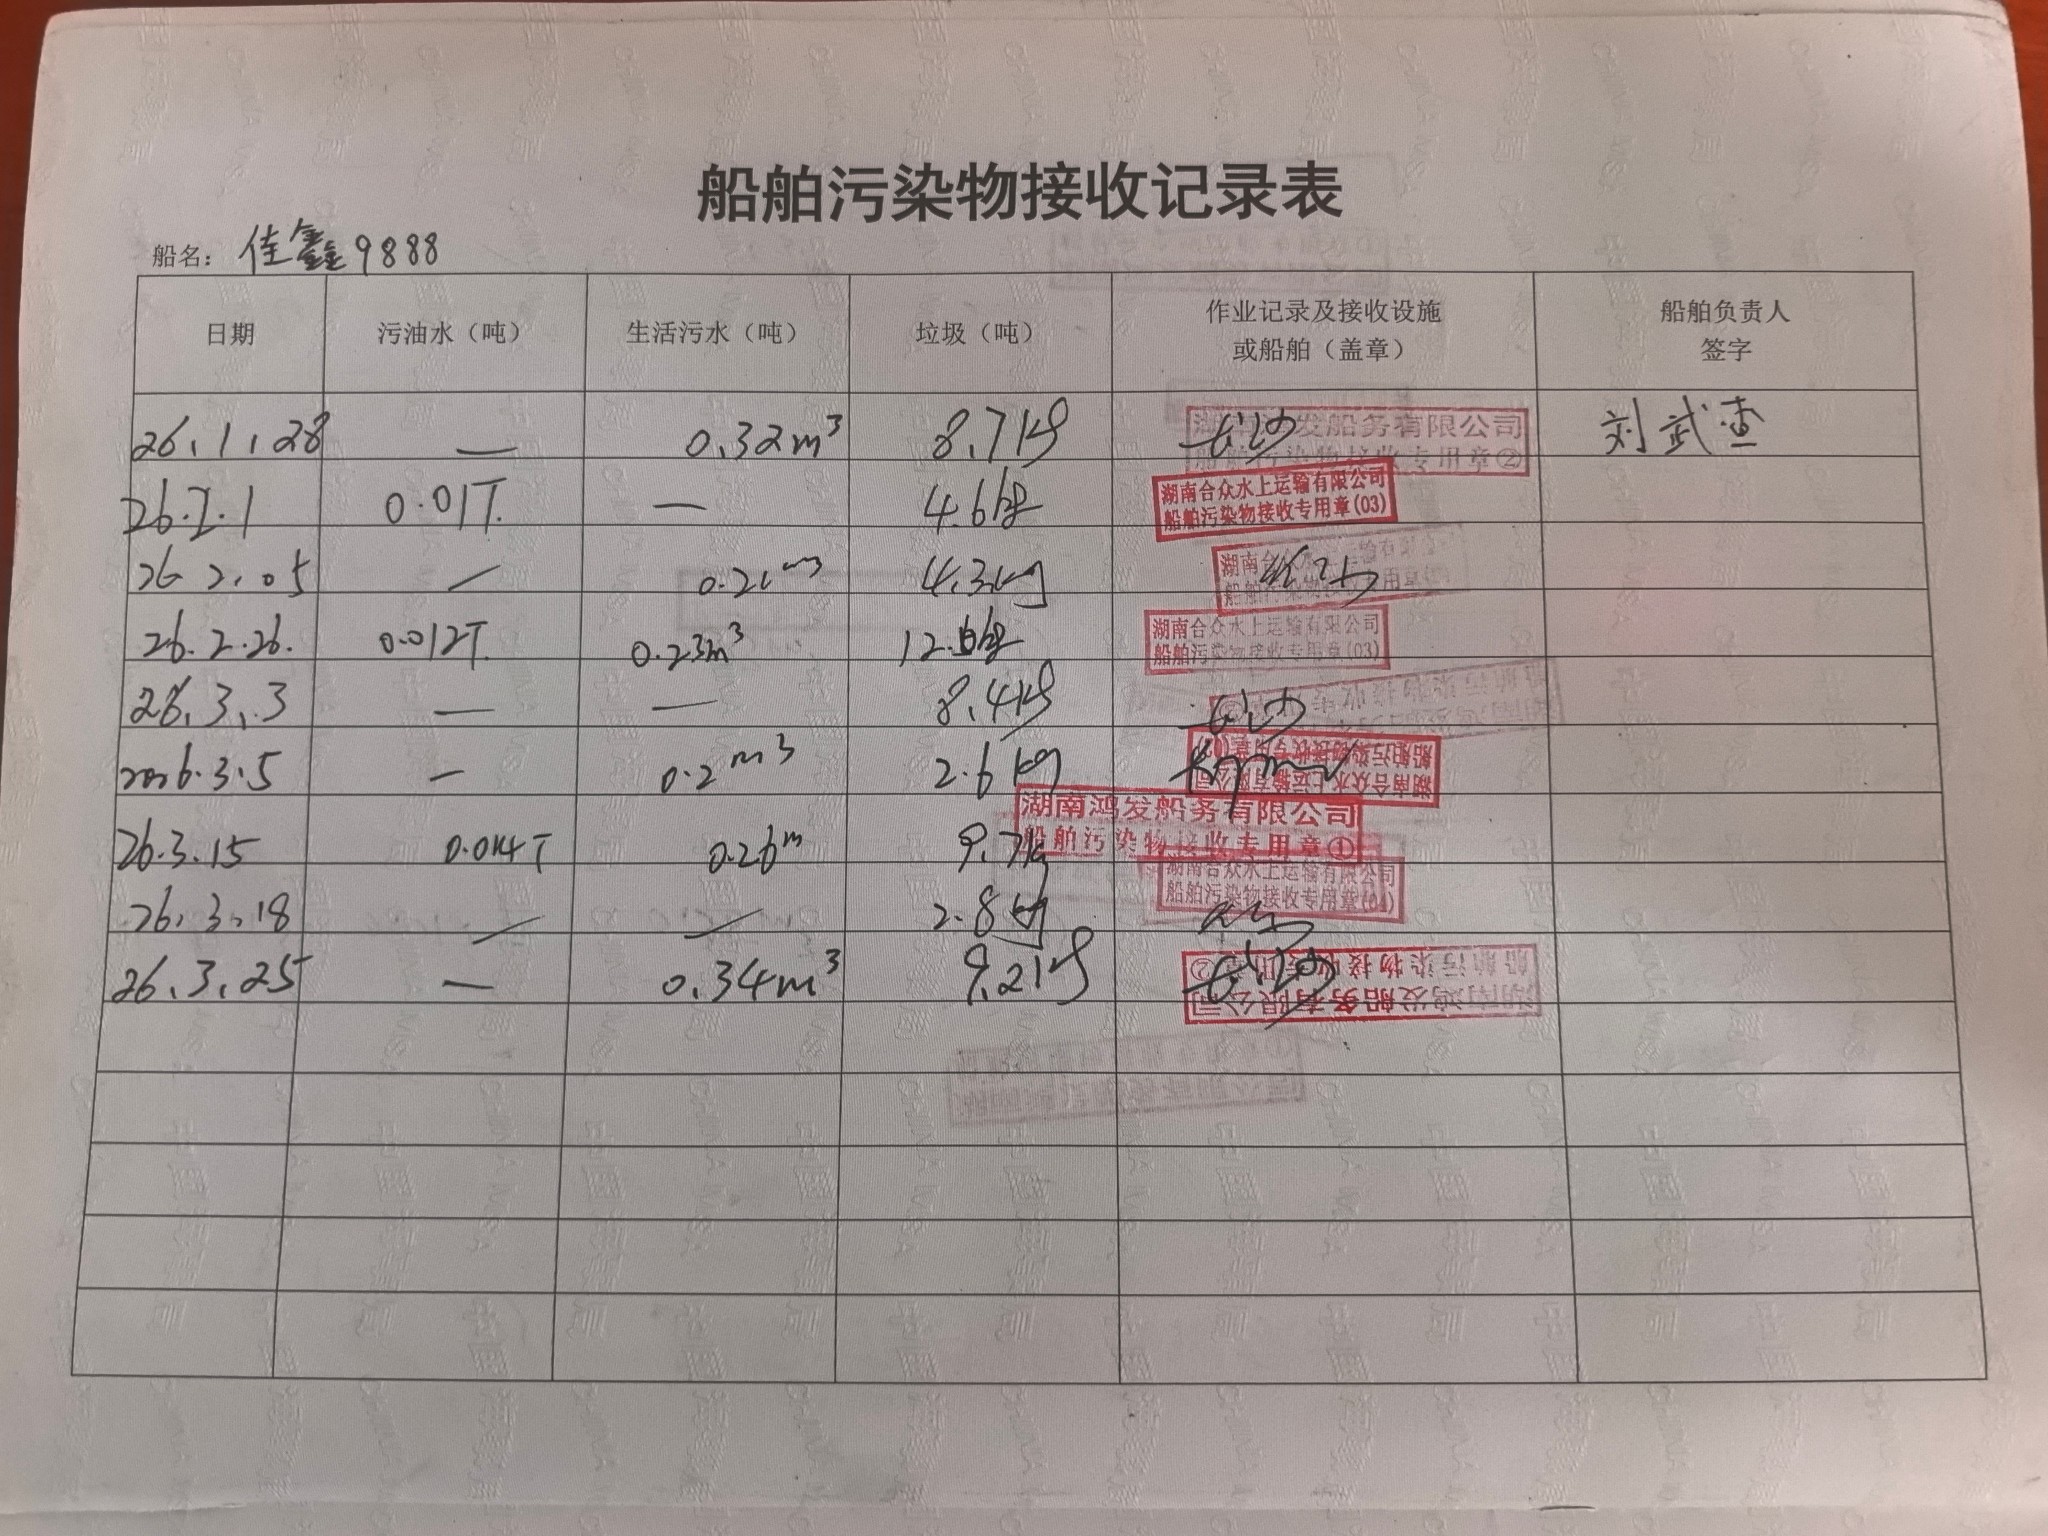 船舶污染物接收记录表
船名：佳鑫9888
日期 污油水（吨） 生活污水（吨） 垃圾（吨） 作业记录及接收设施或船舶（盖章） 船舶负责人签字
26.1.28 — 0.32m³ 8.7kg 长沙 刘武查
湖南鸿发船务有限公司
船舶污染物接收专用章②
26.2.1 0.01T. — 4.6kg
湖南合众水上运输有限公司
船舶污染物接收专用章(03)
26 2.05 — 0.2 m3 4.3kg
湖南合众水上运输有限公司
船舶污染物接收专用章
26.2.26. 0.012T. 0.23m³ 12.6kg
湖南合众水上运输有限公司
船舶污染物接收专用章(03)
26.3.3 — — 8.4kg 长沙
船舶污染物接收专用章②
2026.3.5 — 0.2m3 2.6kg
湖南合众水上运输有限公司
船舶污染物接收专用章
26.3.15 0.014T 0.26m 9.7kg
湖南鸿发船务有限公司
船舶污染物接收专用章①
26.3.18 — — 2.8kg
湖南合众水上运输有限公司
船舶污染物接收专用章(04)
26.3.25 — 0.34m³ 9.21kg 长沙
湖南鸿发船务有限公司
船舶污染物接收专用章②